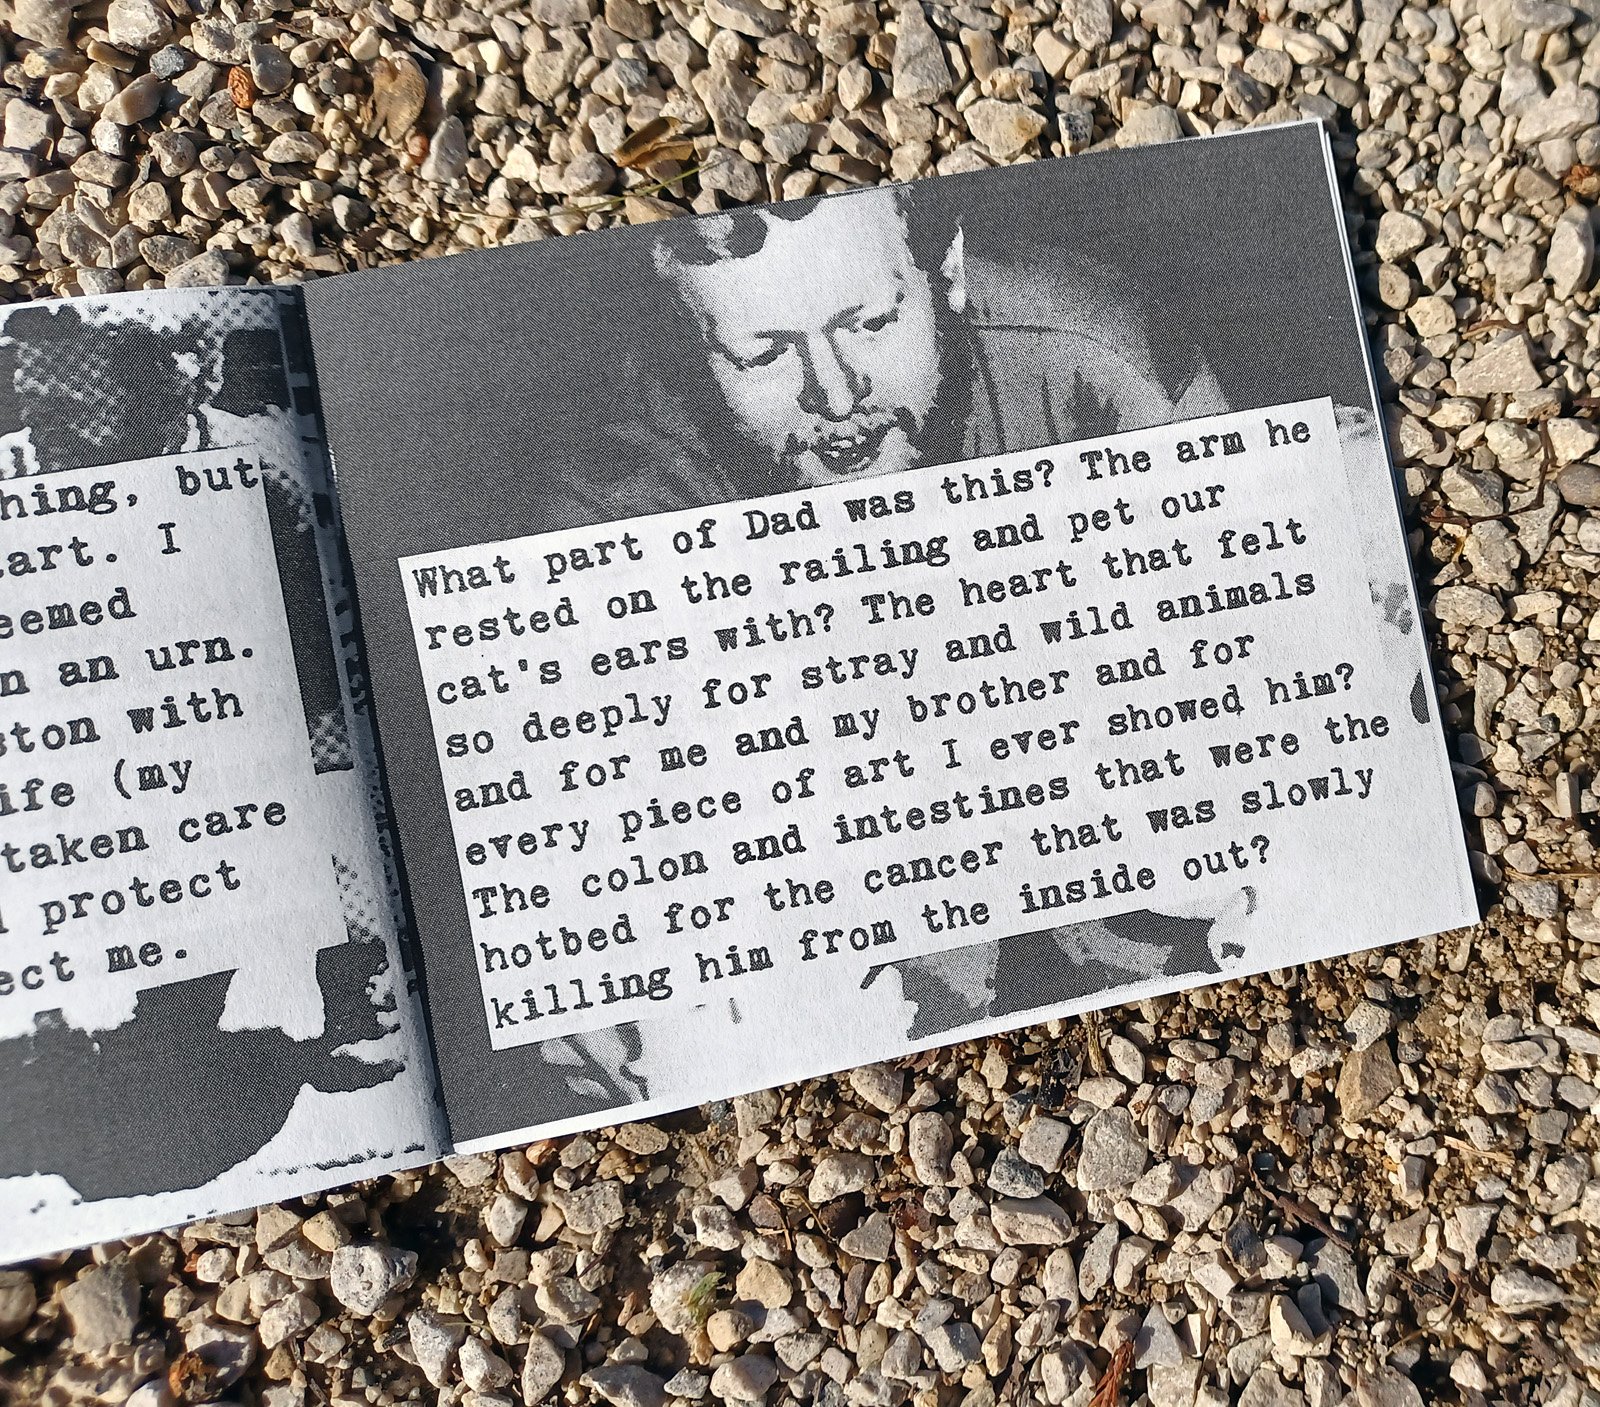 hing, but
art. I
eemed
n an urn.
ston with
ife (my
taken care
protect
ect me.
What part of Dad was this? The arm he
rested on the railing and pet our
cat's ears with? The heart that felt
so deeply for stray and wild animals
and for me and my brother and for
every piece of art I ever showed him?
The colon and intestines that were the
hotbed for the cancer that was slowly
killing him from the inside out?